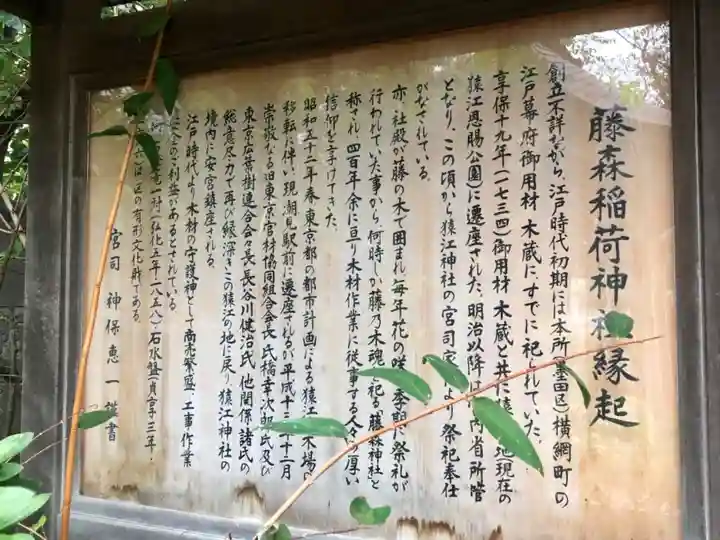 藤森稲荷神社縁起
創立不詳ながら、江戸時代初期には本所(墨田区)横網町の
江戸幕府御用材 木蔵に、すでに祀られていた。
享保十九年(一七三四)御用材 木蔵と共に猿 地現在の
猿江恩賜公園)に遷座された。明治以降は 内省所管
となり、この頃から猿江神社の宮司家により祭祀奉仕
がなされている。
亦、社殿が藤の木で囲まれ、毎年花の咲く季節に祭礼が
行われていた事から、何時しか藤乃木魂を祀る「藤森神社」と
称され、四百年余に亘り木材作業に従事する人々の厚い
信仰を享けてきた。
昭和五十二年春、東京都の都市計画による猿江 木場の
移転に伴い、現潮見駅前に遷座されるが平成十三年十二月
崇敬なる旧東京官材協同組合会長 氏橋幸次郎氏及び
東京広葉樹連合会々長 長谷川健治氏、他関係諸氏の
総意尽力で再び縁深きこの猿江の地に戻り、猿江神社の
境内に安宮鎮座される。
江戸時代より、木材の守護神として商売繁盛、工事作業
安全のご利益があるとされている。
一対(弘化五年・一八五八)・石水盤(貞享三年・
は区の有形文化財である。
宮司 神保恵一謹書